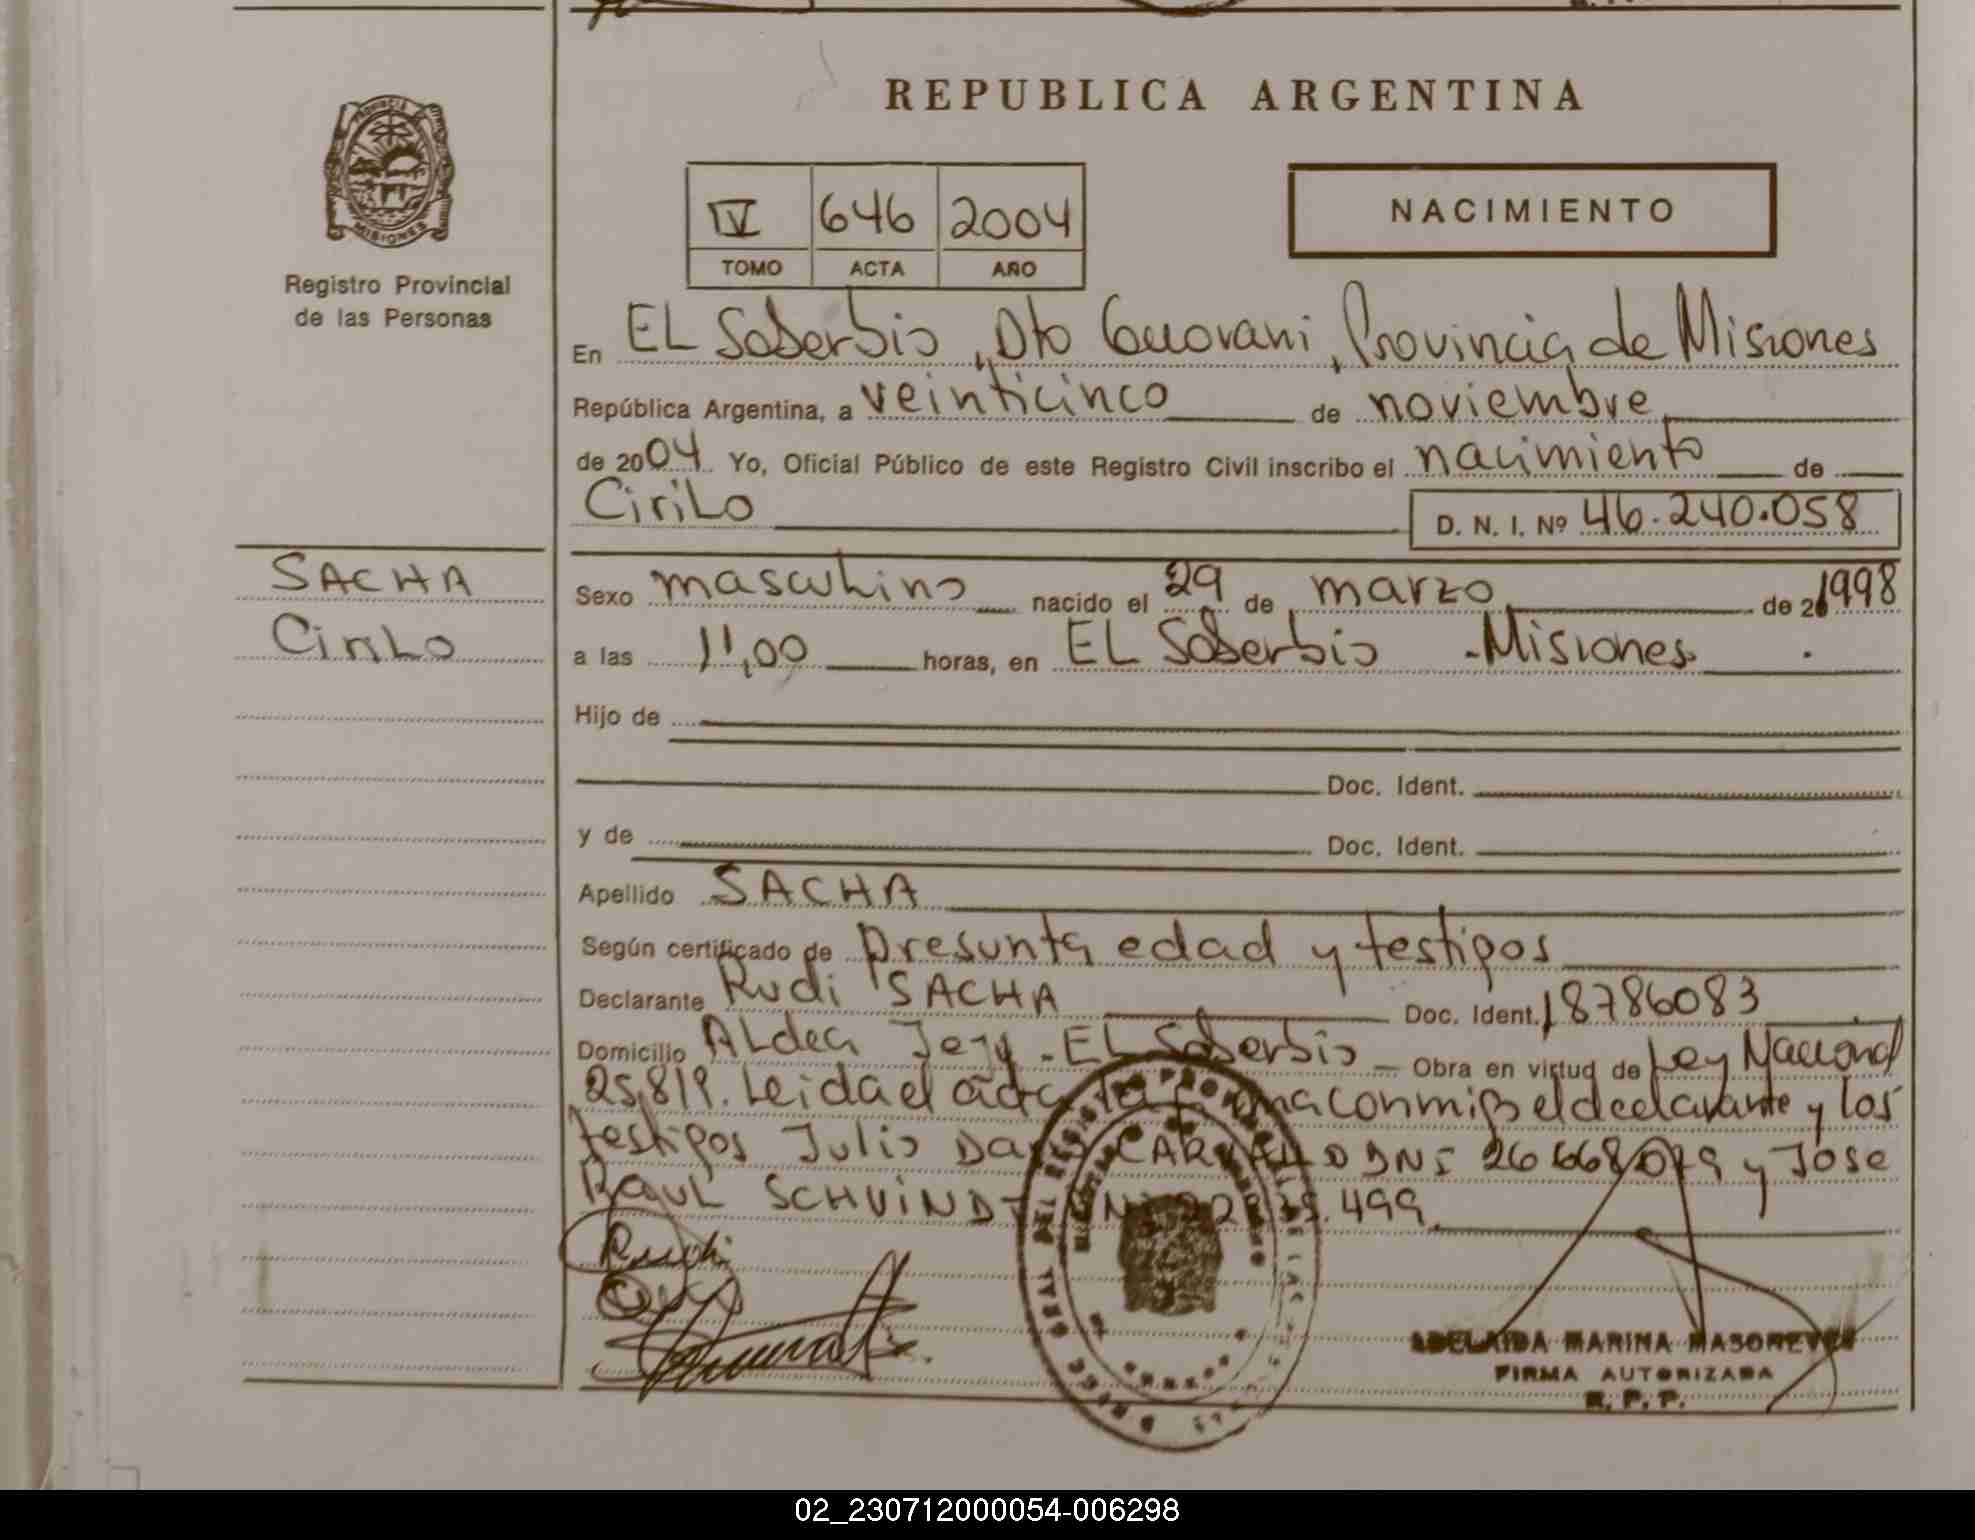 REPUBLICA ARGENTINA
PROVINCIA
MISIONES
Registro Provincial
de las Personas
IV 646 2004
TOMO ACTA AÑO
NACIMIENTO
En EL Soberbio, Dto Guarani, Provincia de Misiones
República Argentina, a veinticinco de noviembre
de 2004 Yo, Oficial Público de este Registro Civil inscribo el nacimiento de
Cirilo D. N. I. Nº 46.240.058
SACHA
Cirilo
Sexo masculino nacido el 29 de marzo de 1998
a las 11,00 horas, en EL Soberbio - Misiones.
Hijo de
Doc. Ident.
y de Doc. Ident.
Apellido SACHA
Según certificado de presunta edad y testigos
Declarante Rudi SACHA Doc. Ident. 18786083
Domicilio ALdea Jejy - EL Soberbio Obra en virtud de Ley Nacional
25.819. Leida el acta la firma conmigo el declarante y los
testigos Julio DNI 26668079 y Jose
RAUL SCHVINDT 499
Rudi
ADELAIDA MARINA
FIRMA AUTORIZADA
R. P. P.
02_230712000054-006298